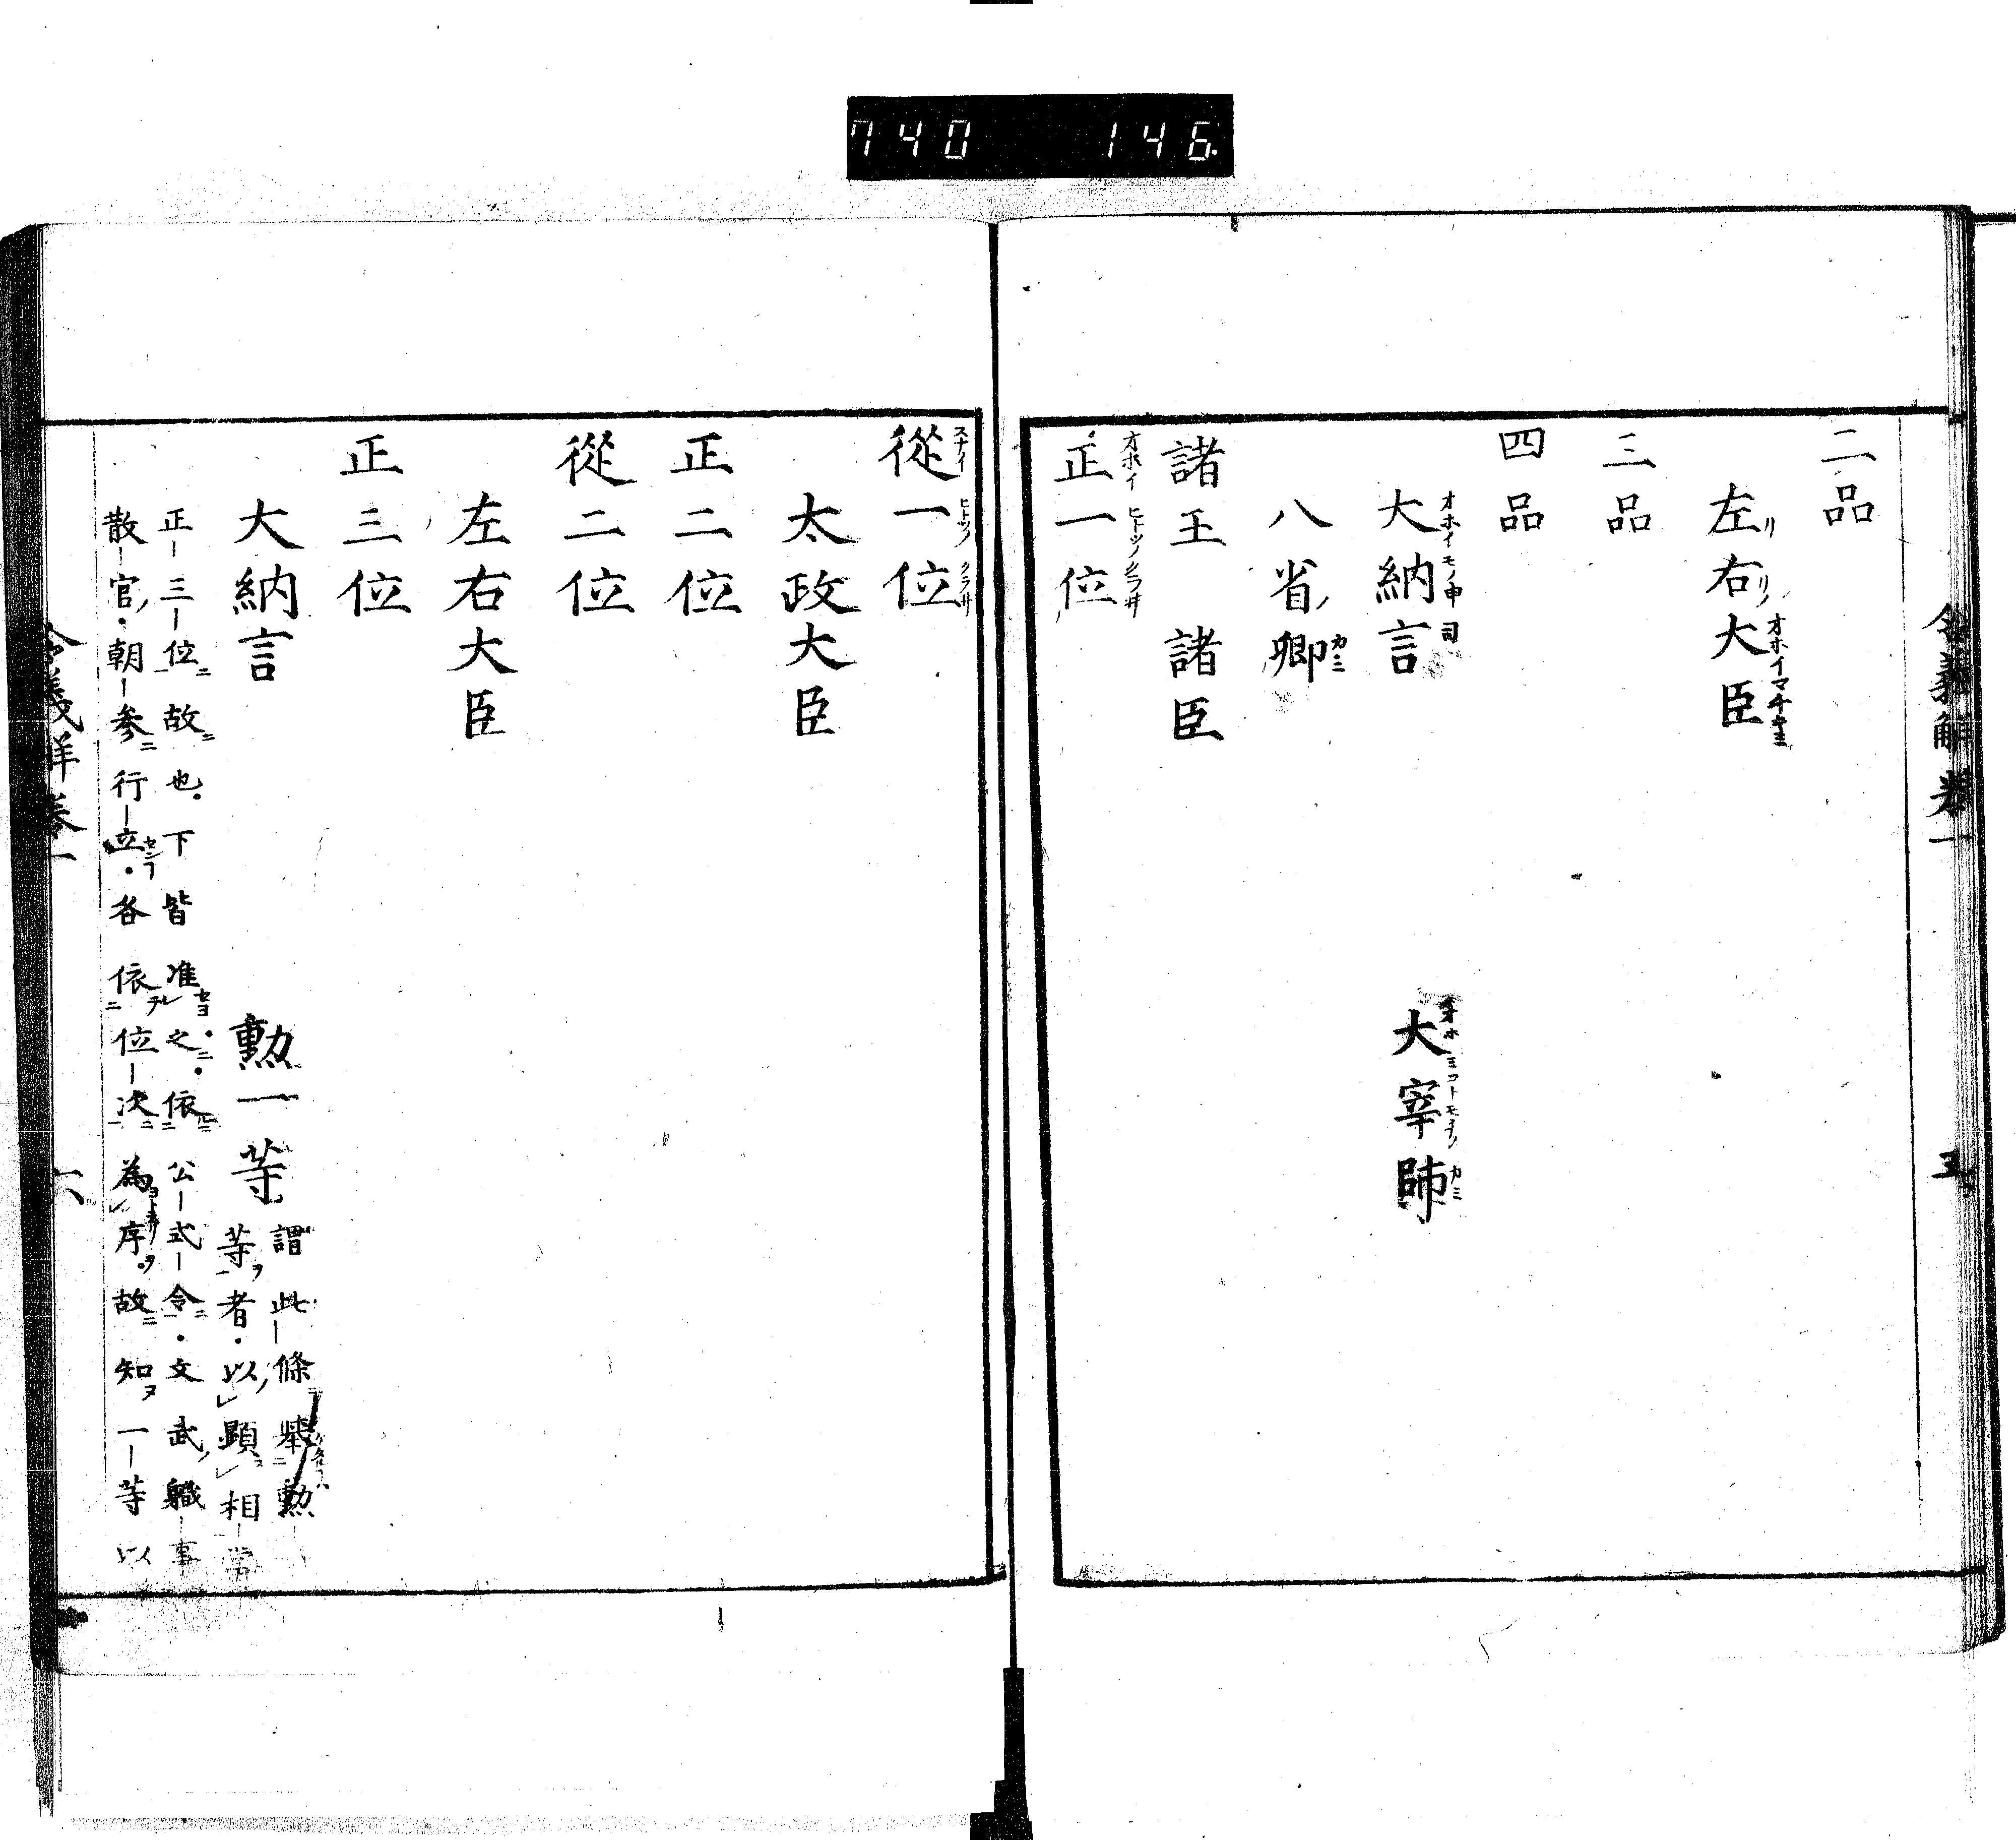 740 146
令義解卷一 五
二品
左右大臣
三品
四品
大納言 大宰帥
八省卿
諸王 諸臣
正一位
從一位
太政大臣
正二位
從二位
左右大臣
正三位
大納言 勲一等
謂此條舉勲
等者以顯相當
正三位故也下皆准之依公式令文武職事
散官朝参行立各依位次為序故知一等以
令義解卷一 六